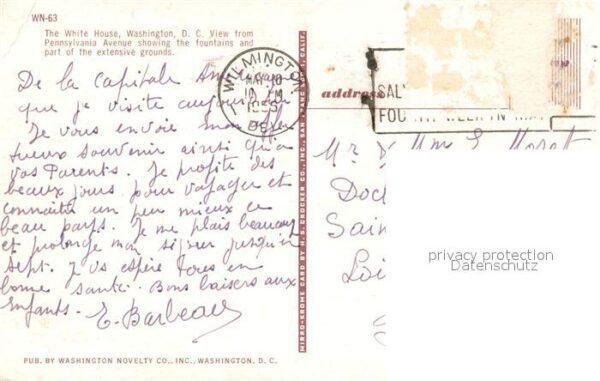 WN-63
The White House, Washington, D. C. View from
Pennsylvania Avenue showing the fountains and
part of the extensive grounds.
De la capitale Américaine
que je visite aujourd'hui
Je vous envoie mon affec
tueux souvenir ainsi qu'à
vos Parents. Je profite des
beaux jours pour voyager et
connaître un peu mieux ce
beau pays. Je me plais beaucoup
et prolonge mon séjour jusqu'en
Sept. J vs espère tous en
bonne santé. Bons baisers aux
Enfants. E. Barbeau
PUB. BY WASHINGTON NOVELTY CO., INC., WASHINGTON, D. C.
MIRRO-KROME CARD BY H. S. CROCKER CO., INC., SAN FRANCISCO, CALIF.
WILMINGTON
MAY 10
PM
1955
DEL
address
SAL
FOU
Mr
Doc
Sain
Loi
privacy protection
Datenschutz